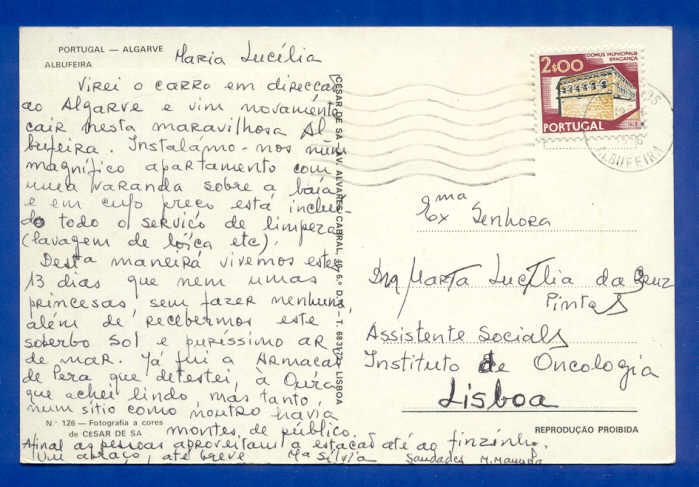 PORTUGAL — ALGARVE
ALBUFEIRA
Maria Lucília
Virei o carro em direcção
ao Algarve e vim novamente
cair nesta maravilhosa Al
bufeira. Instalámo-nos num
magnífico apartamento com
uma varanda sobre a baía
e em cujo preço está incluí-
do todo o serviço de limpeza
(lavagem de loiça etc).
Desta maneira vivemos estes
13 dias que nem umas
princesas, sem fazer nenhum,
além de recebermos este
soberbo sol e puríssimo ar
de mar. Já fui a Armação
de Pera que detestei, à Oura
que achei lindo, mas tanto
num sitio como noutro havia
montes de público.
Afinal as pessoas aproveitam a estação até ao finzinho.
Um abraço, até breve Mª Silvia
Saudades
Nº 126 — Fotografia a cores
de CESAR DE SA
CESAR DE SA — AV. ALVARES CABRAL LISBOA
DOMUS MUNICIPALIS
BRAGANÇA
2$00
PORTUGAL
ALBUFEIRA
Exma Senhora
Maria Lucília da Cruz
Pinto
Assistente Social
Instituto de Oncologia
Lisboa
REPRODUÇÃO PROIBIDA